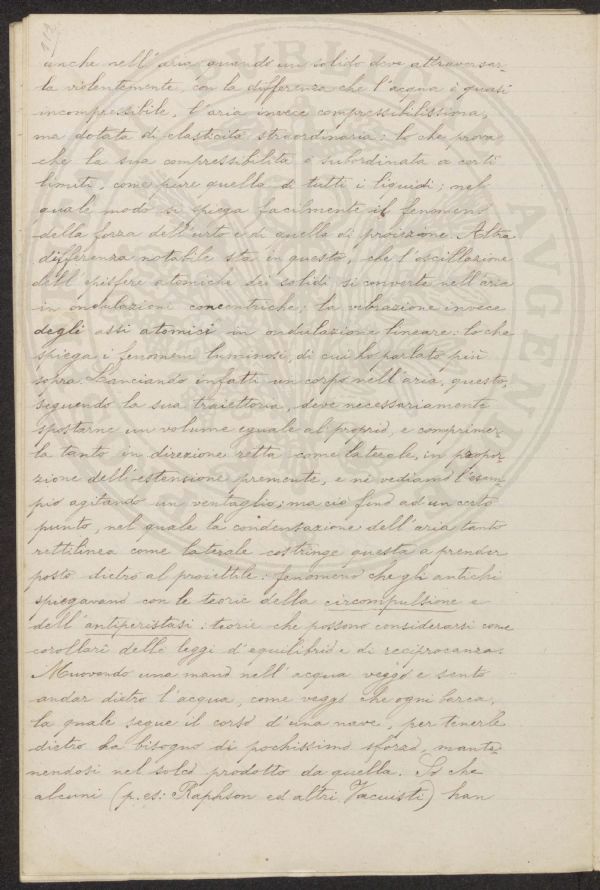 212
anche nell'aria quando un solido deve attraversar-
la violentemente, con la differenza che l'acqua è quasi
incompressibile, l'aria invece compressibilissima,
ma dotata di elasticità straordinaria: lo che prova
che la sua compressibilità è subordinata a certi
limiti, come pure quella di tutti i liquidi; nel
quale modo si spiega facilmente il fenomeno
della forza dell'urto e di quella di proiezione. Altra
differenza notabile sta in questo, che l'oscillazione
dell'episfere atomiche dei solidi si converte nell'aria
in ondulazioni concentriche; la vibrazione invece
degli assi atomici in ondulazione lineare: lo che
spiega i fenomeni luminosi, di cui ho parlato più
sopra. Lanciando infatti un corpo nell'aria, questo,
seguendo la sua traiettoria, deve necessariamente
spostarne un volume eguale al proprio, e comprimer-
la tanto in direzione retta come laterale, in propor-
zione dell'estensione premente, e ne vediamo l'esem-
pio agitando un ventaglio; ma ciò fino ad un certo
punto, nel quale la condensazione dell'aria tanto
rettilinea come laterale costringe questa a prender
posto dietro al proiettile: fenomeno che gli antichi
spiegavano con le teorie della circompulsione e
dell'antiperistasi: teorie che possono considerarsi come
corollari delle leggi d'equilibrio e di reciprocanza.
Muovendo una mano nell'acqua veggo e sento
andar dietro l'acqua, come veggo che ogni barca,
la quale segue il corso d'una nave, per tenerle
dietro ha bisogno di pochissimo sforzo, mante-
nendosi nel solco prodotto da quella. So che
alcuni (p. es: Raphson ed altri Vacuisti) han
PVBLICO
AVGENDO